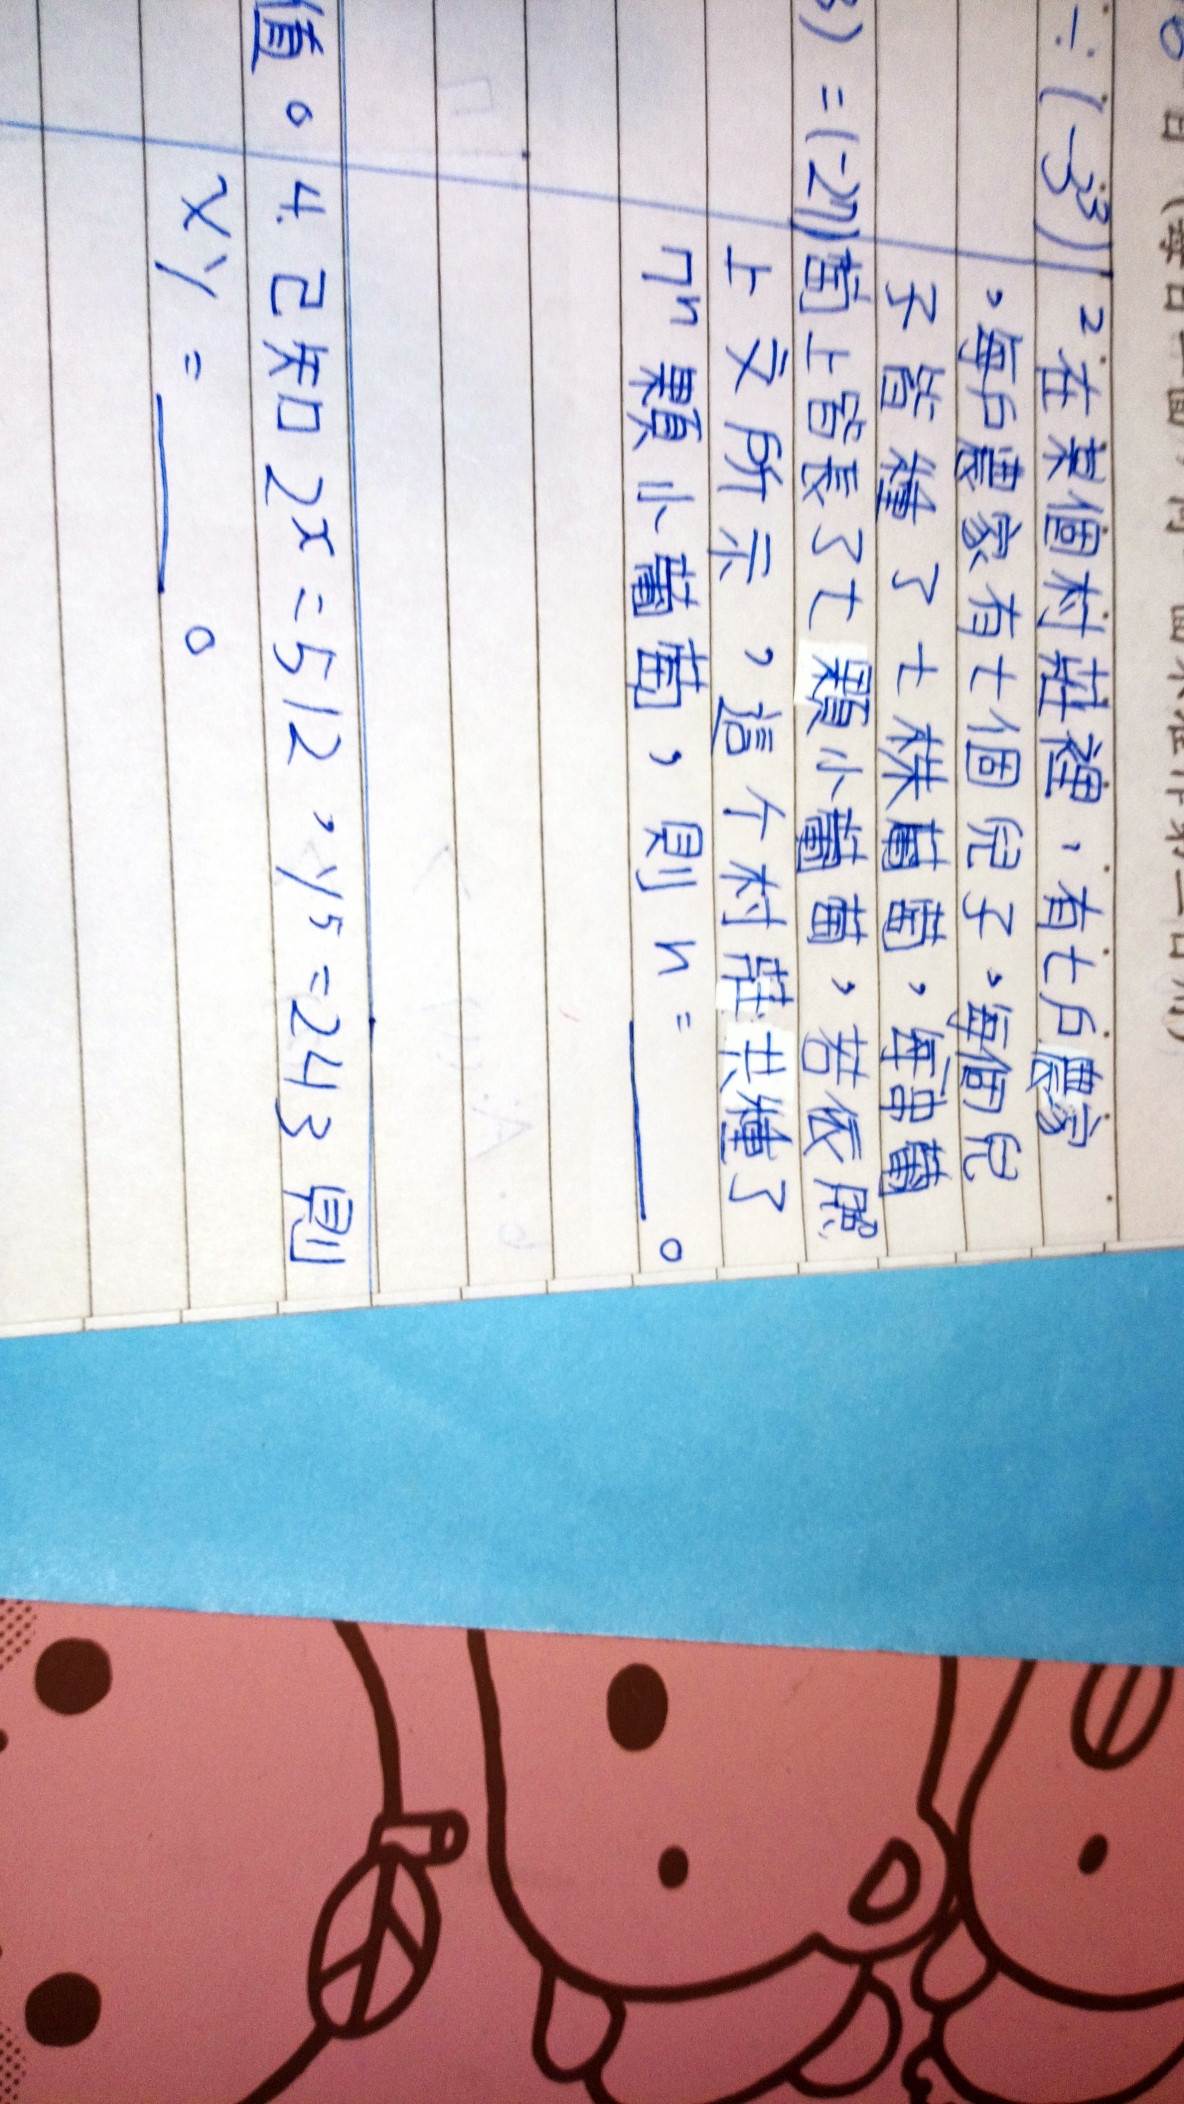 ÷(-3³)
2.在某個村莊裡，有七戶農家
，每戶農家有七個兒子，每個兒
子皆種了七株葡萄，每串葡
) =(-27)
萄上皆長了七顆小葡萄，若依照
上文所示，這个村莊共種了
7ⁿ顆小葡萄，則n=____。
值。
4.已知2x=512，y⁵=243則
xy=____。